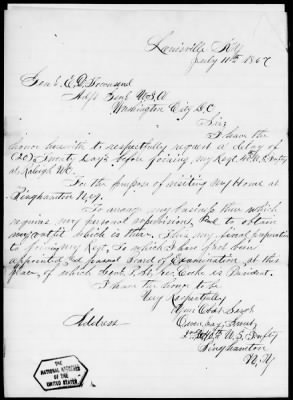 Louisville Ky
July 11th 1867
Genl. E. D. Townsend
Adjt Genl U.S.A
Washington City D.C.
Sir
I have the
honor herewith to respectfully request a delay of
(20) Twenty Days before joining my Regt 40th Infty
at Raleigh N.C.
For the purpose of visiting my Home at
Binghamton N.Y.
To arrange my business there which
requires my personal supervision and to obtain
my outfit which is there. This my final preparation
to joining my Regt. To which I have just been
appointed and passed Board of Examination at this
place, of which Genl. P. St. Geo. Cooke is President.
I have the honor to be
Very Respectfully
Your Obdt Servt
Address
40th U.S. Infty
Binghamton
N.Y
THE
NATIONAL ARCHIVES
OF THE
UNITED STATES